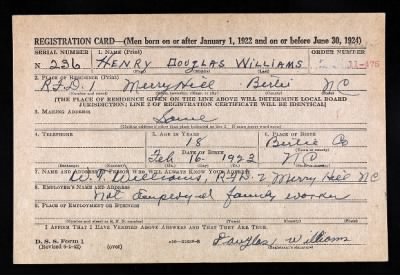 REGISTRATION CARD—(Men born on or after January 1, 1922 and on or before June 30, 1924)
SERIAL NUMBER 1. NAME (Print) ORDER NUMBER
N 236 HENRY DOUGLAS WILLIAMS
(First) (Middle) (Last)
2. PLACE OF RESIDENCE (Print)
R.F.D. 1 Merry Hill Bertie N C
[THE PLACE OF RESIDENCE GIVEN ON THE LINE ABOVE WILL DETERMINE LOCAL BOARD
JURISDICTION; LINE 2 OF REGISTRATION CERTIFICATE WILL BE IDENTICAL]
3. MAILING ADDRESS
Same
[Mailing address if other than place indicated on line 2. If same insert word same]
4. TELEPHONE 5. AGE IN YEARS 6. PLACE OF BIRTH
18 Bertie Co
DATE OF BIRTH
Feb 16 1923 NC
7. NAME AND ADDRESS OF PERSON WHO WILL ALWAYS KNOW YOUR ADDRESS
Williams, R.F.D. Merry Hill NC
8. EMPLOYER'S NAME AND ADDRESS
Not Employed family worker
9. PLACE OF EMPLOYMENT OR BUSINESS
I AFFIRM THAT I HAVE VERIFIED ABOVE ANSWERS AND THAT THEY ARE TRUE.
D. S. S. Form 1
(over)
Douglas Williams
(Registrant's signature)